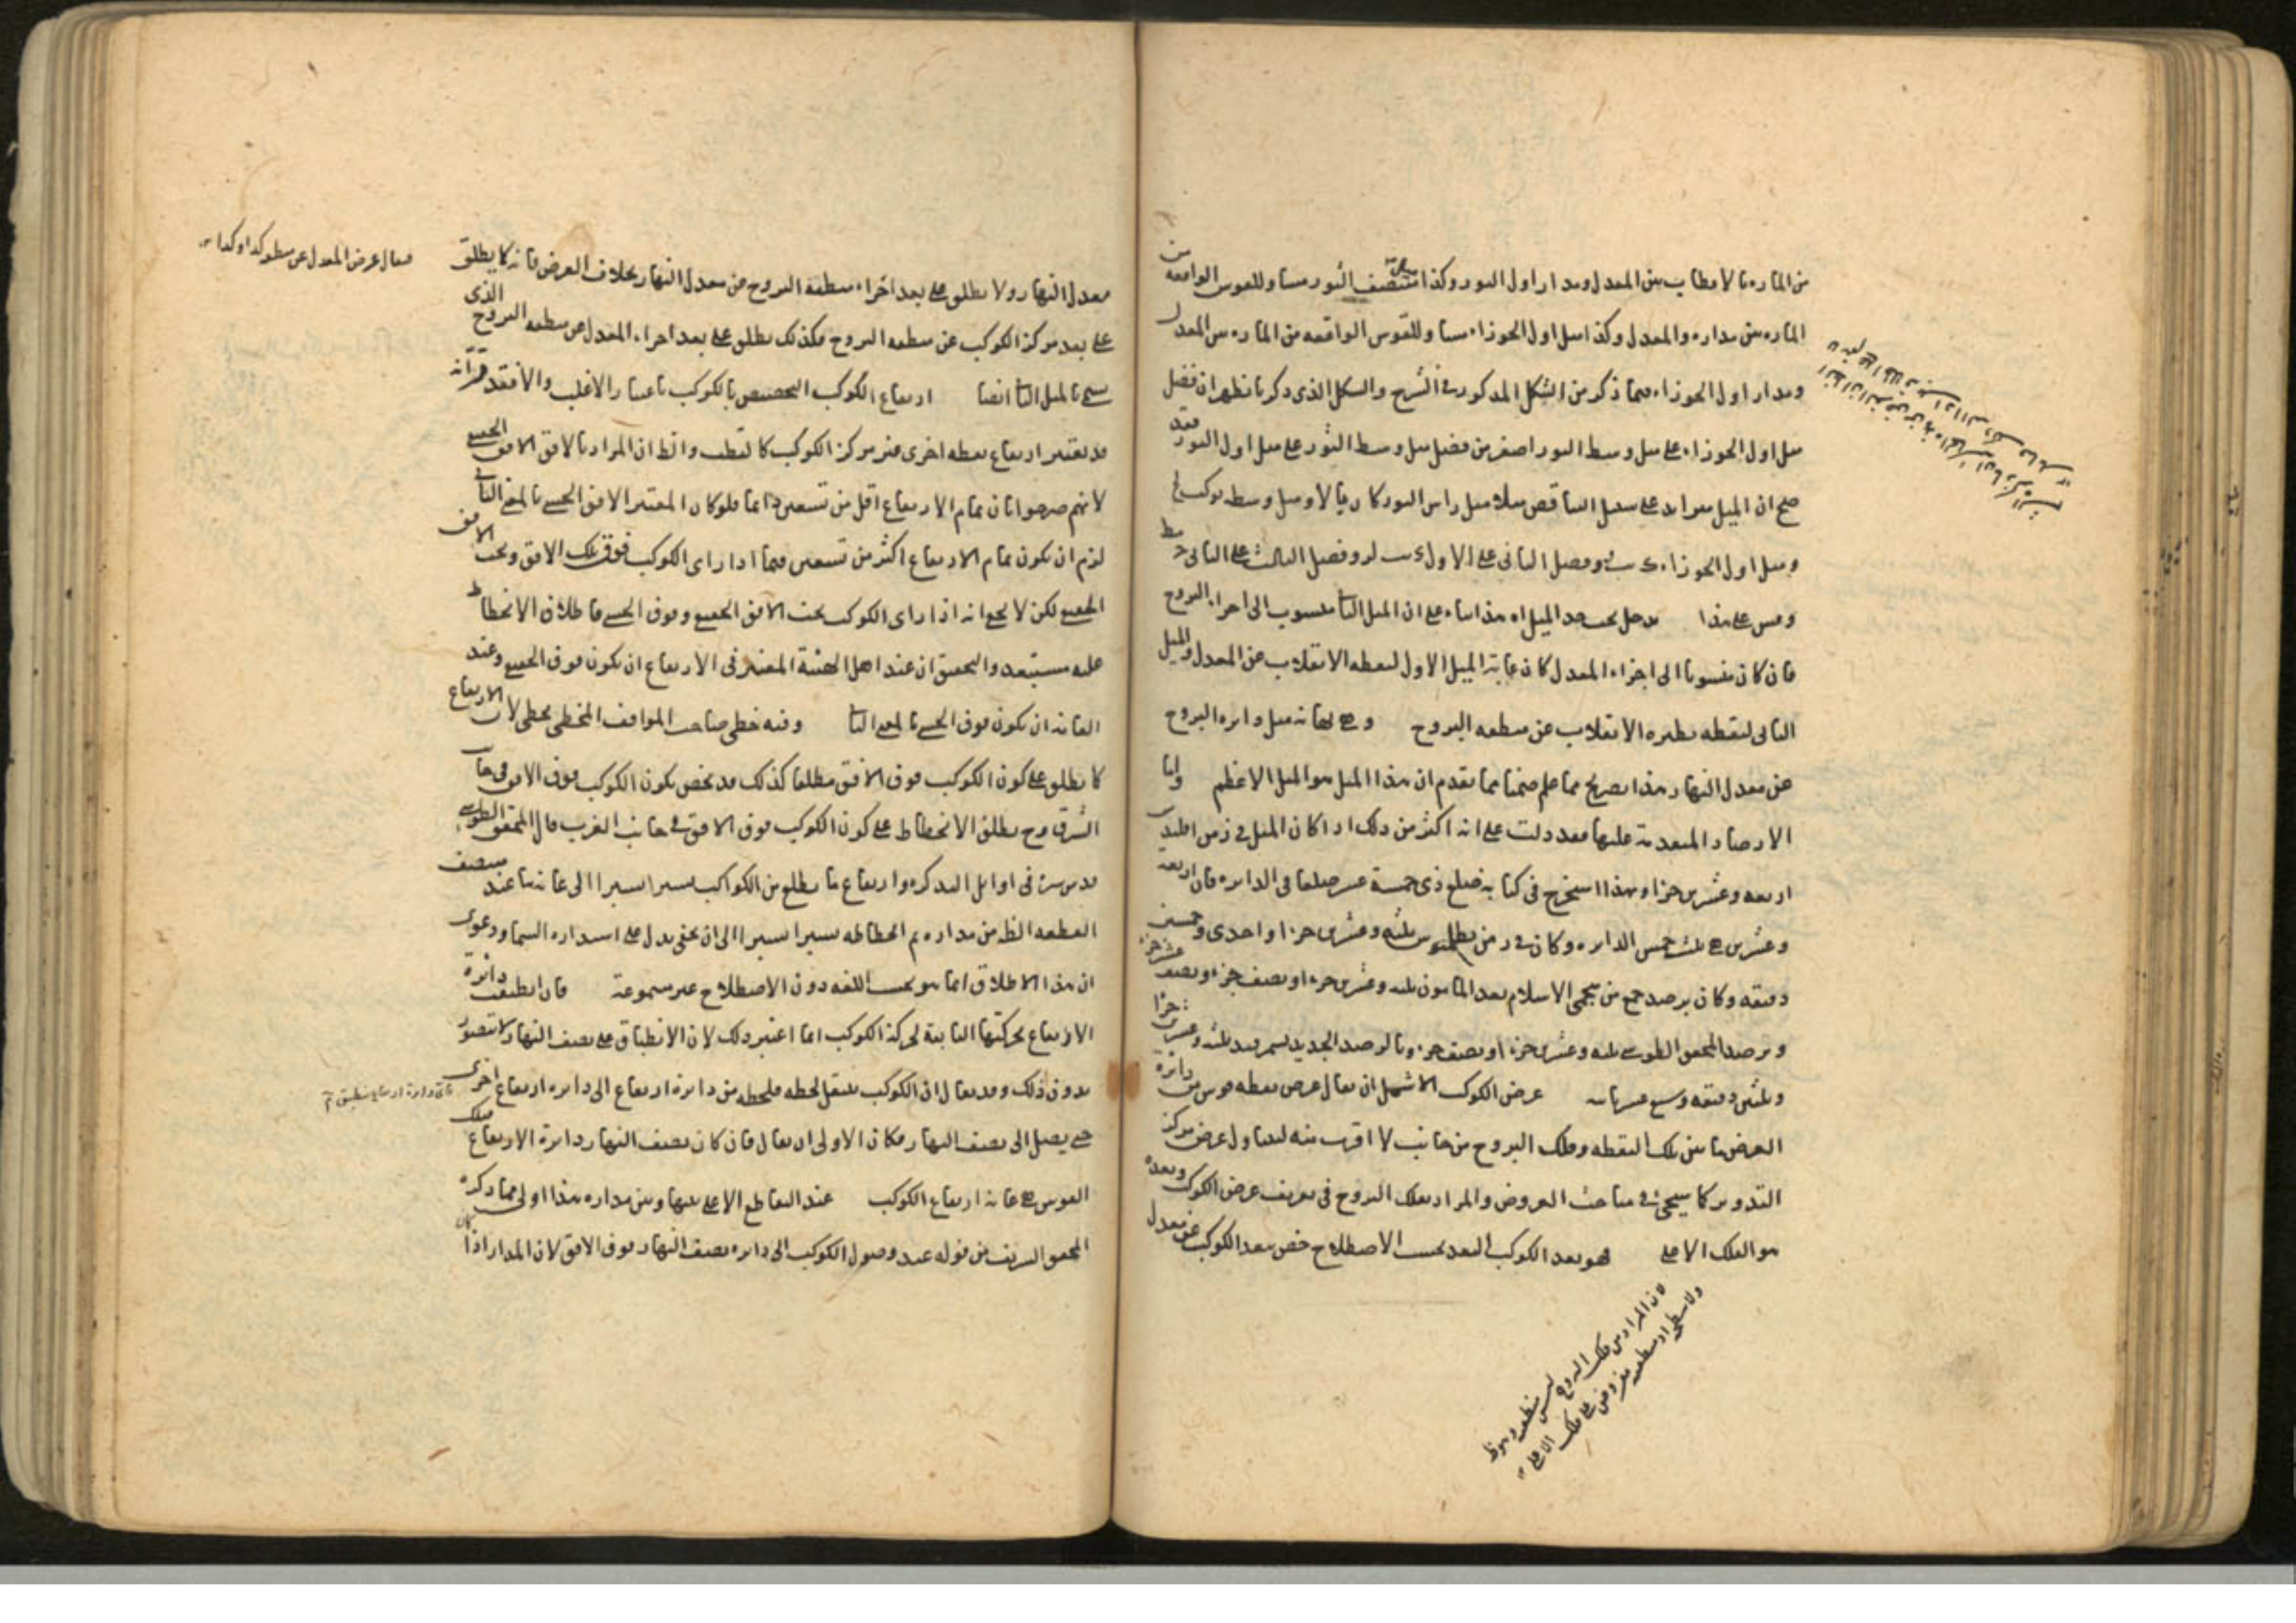 من المارة بالاقطاب بين المعدل ومدار اول الثور وكذا منتصف الثور مساو للقوس الواقعة من
المارة بين مداره والمعدل وكذا ميل اول الجوزاء مساو للقوس الواقعة من المارة بين المعدل
ومدار اول الجوزاء فيما ذكر من الشكل المذكور في الشرح والشكل الذي ذكرنا يظهر ان فضل
ميل اول الجوزاء على ميل وسط الثور اصغر من فضل ميل وسط الثور على ميل اول الثور فقد
صح ان الميل يتزايد على سبيل التناقص مثلا ميل راس الثور كان وميل وسطه
وميل اول الجوزاء وفضل الثاني على الاول وفضل الثالث على الثاني
وقس على هذا يدخل تحت حد الميل اه هذا بناء على ان الميل الثاني منسوب الى اجزاء البروج
فان كان منسوبا الى اجزاء المعدل كان غاية الميل الاول لنقطة الانقلاب عن المعدل والميل
الثاني لنقطة نظيرة الانقلاب عن منطقة البروج وهي نهاية ميل دائرة البروج
عن معدل النهار هذا تصريح بما علم ضمنا مما تقدم ان هذا الميل هو الميل الاعظم واما
الارصاد المتقدمة عليها فقد دلت على انه اكثر من ذلك اذا كان الميل في زمن اقليدس
اربعة وعشرين جزا وبهذا استخرج في كتابه ضلع ذي خمسة عشر ضلعا في الدائرة فان اربعة
وعشرين هي ثلث خمس الدائرة وكان في زمن بطلميوس ثلثة وعشرين جزا واحدى وخمسين
دقيقة وكان برصد جمع من منجمى الاسلام بعد المامون ثلثة وعشرين جزءا ونصف جزء ونصف عشر جزء
وبرصد المحقق الطوسي ثلثة وعشرين جزءا ونصف جزء وبالرصد الجديد ثلثة وعشرين جزا
وثلثين دقيقة وسبع عشر ثانية عرض الكوكب الاشمل ان يقال عرض نقطة قوس من دائرة
العرض ما بين تلك النقطة وفلك البروج من جانب لا اقرب منه ليتناول عرض مركز
التدوير كما سيجئ في مباحث العروض والمراد بفلك البروج في تعريف عرض الكوكب وبعده
هو الفلك الاعلى هو بعد الكوكب البعد بحسب الاصطلاح خص ببعد الكوكب عن معدل
لان المراد من فلك البروج ليس منطقته
معدل النهار ولا يطلق على بعد اجزاء منطقة البروج من معدل النهار بخلاف العرض فانه كما يطلق
على بعد مركز الكوكب عن منطقة البروج فكذلك يطلق على بعد اجزاء المعدل عن منطقة البروج الذى
يسمى بالميل الثاني ايضا ارتفاع الكوكب التخصيص بالكوكب باعتبار الاغلب والا فقد
قد يعتبر ارتفاع نقطة اخرى غير مركز الكوكب كالقطب والظ ان المراد بالافق الافق الحسي
لانهم صرحوا بان تمام الارتفاع اقل من تسعين دائما فلو كان المعتبر الافق الحسي بالمعنى الثاني
لزم ان يكون تمام الارتفاع اكثر من تسعين فيما اذا راى الكوكب فوق تلك الافق وتحت الافق
الحقيقي لكن لا يخفى انه اذا راى الكوكب تحت الافق الحقيقي وفوق الحسي فاطلاق الانحطاط
عليه مستبعد والتحقيق ان عند اهل الهيئة المعتبر في الارتفاع ان يكون فوق الحقيقي وعند
العامة ان يكون فوق الحسي بالمعنى الثاني وفيه خطى صاحب المواقف المخطى يخطى لان الارتفاع
كما يطلق على كون الكوكب فوق الافق مطلقا كذلك قد يخص بكون الكوكب فوق الافق في جانب
الشرق وح يطلق الانحطاط على كون الكوكب فوق الافق في جانب الغرب قال المحقق الطوسي
قدس سره في اوايل التذكرة وارتفاع ما يطلع من الكواكب يسيرا يسيرا الى غاية ما عند منتصف
القطعة الظ من مداره ثم انحطاطه يسيرا يسيرا الى ان يخفى يدل على استدارة السماء ودعوى
ان هذا الاطلاق انما هو بحسب اللغة دون الاصطلاح غير مسموعة فان انطبقت دائرة
الارتفاع بحركتها التابعة لحركة الكوكب انما اعتبر ذلك لان الانطباق على نصف النهار لا يتصور
بدون ذلك وقد يقال ان الكوكب ينتقل لحظة فلحظة من دائرة ارتفاع الى دائرة ارتفاع اخرى
حتى يصل الى نصف النهار فكان الاولى ان يقال فان كان نصف النهار دائرة الارتفاع فتلك
القوس هي غاية ارتفاع الكوكب عند التقاطع الاعلى بينها وبين مداره هذا اولى مما ذكره
المحقق الشريف من قوله عند وصول الكوكب الى دائرة نصف النهار فوق الافق لان المدار اذا كان
فيقال عرض المعدل عن منطقة كذا وكذا